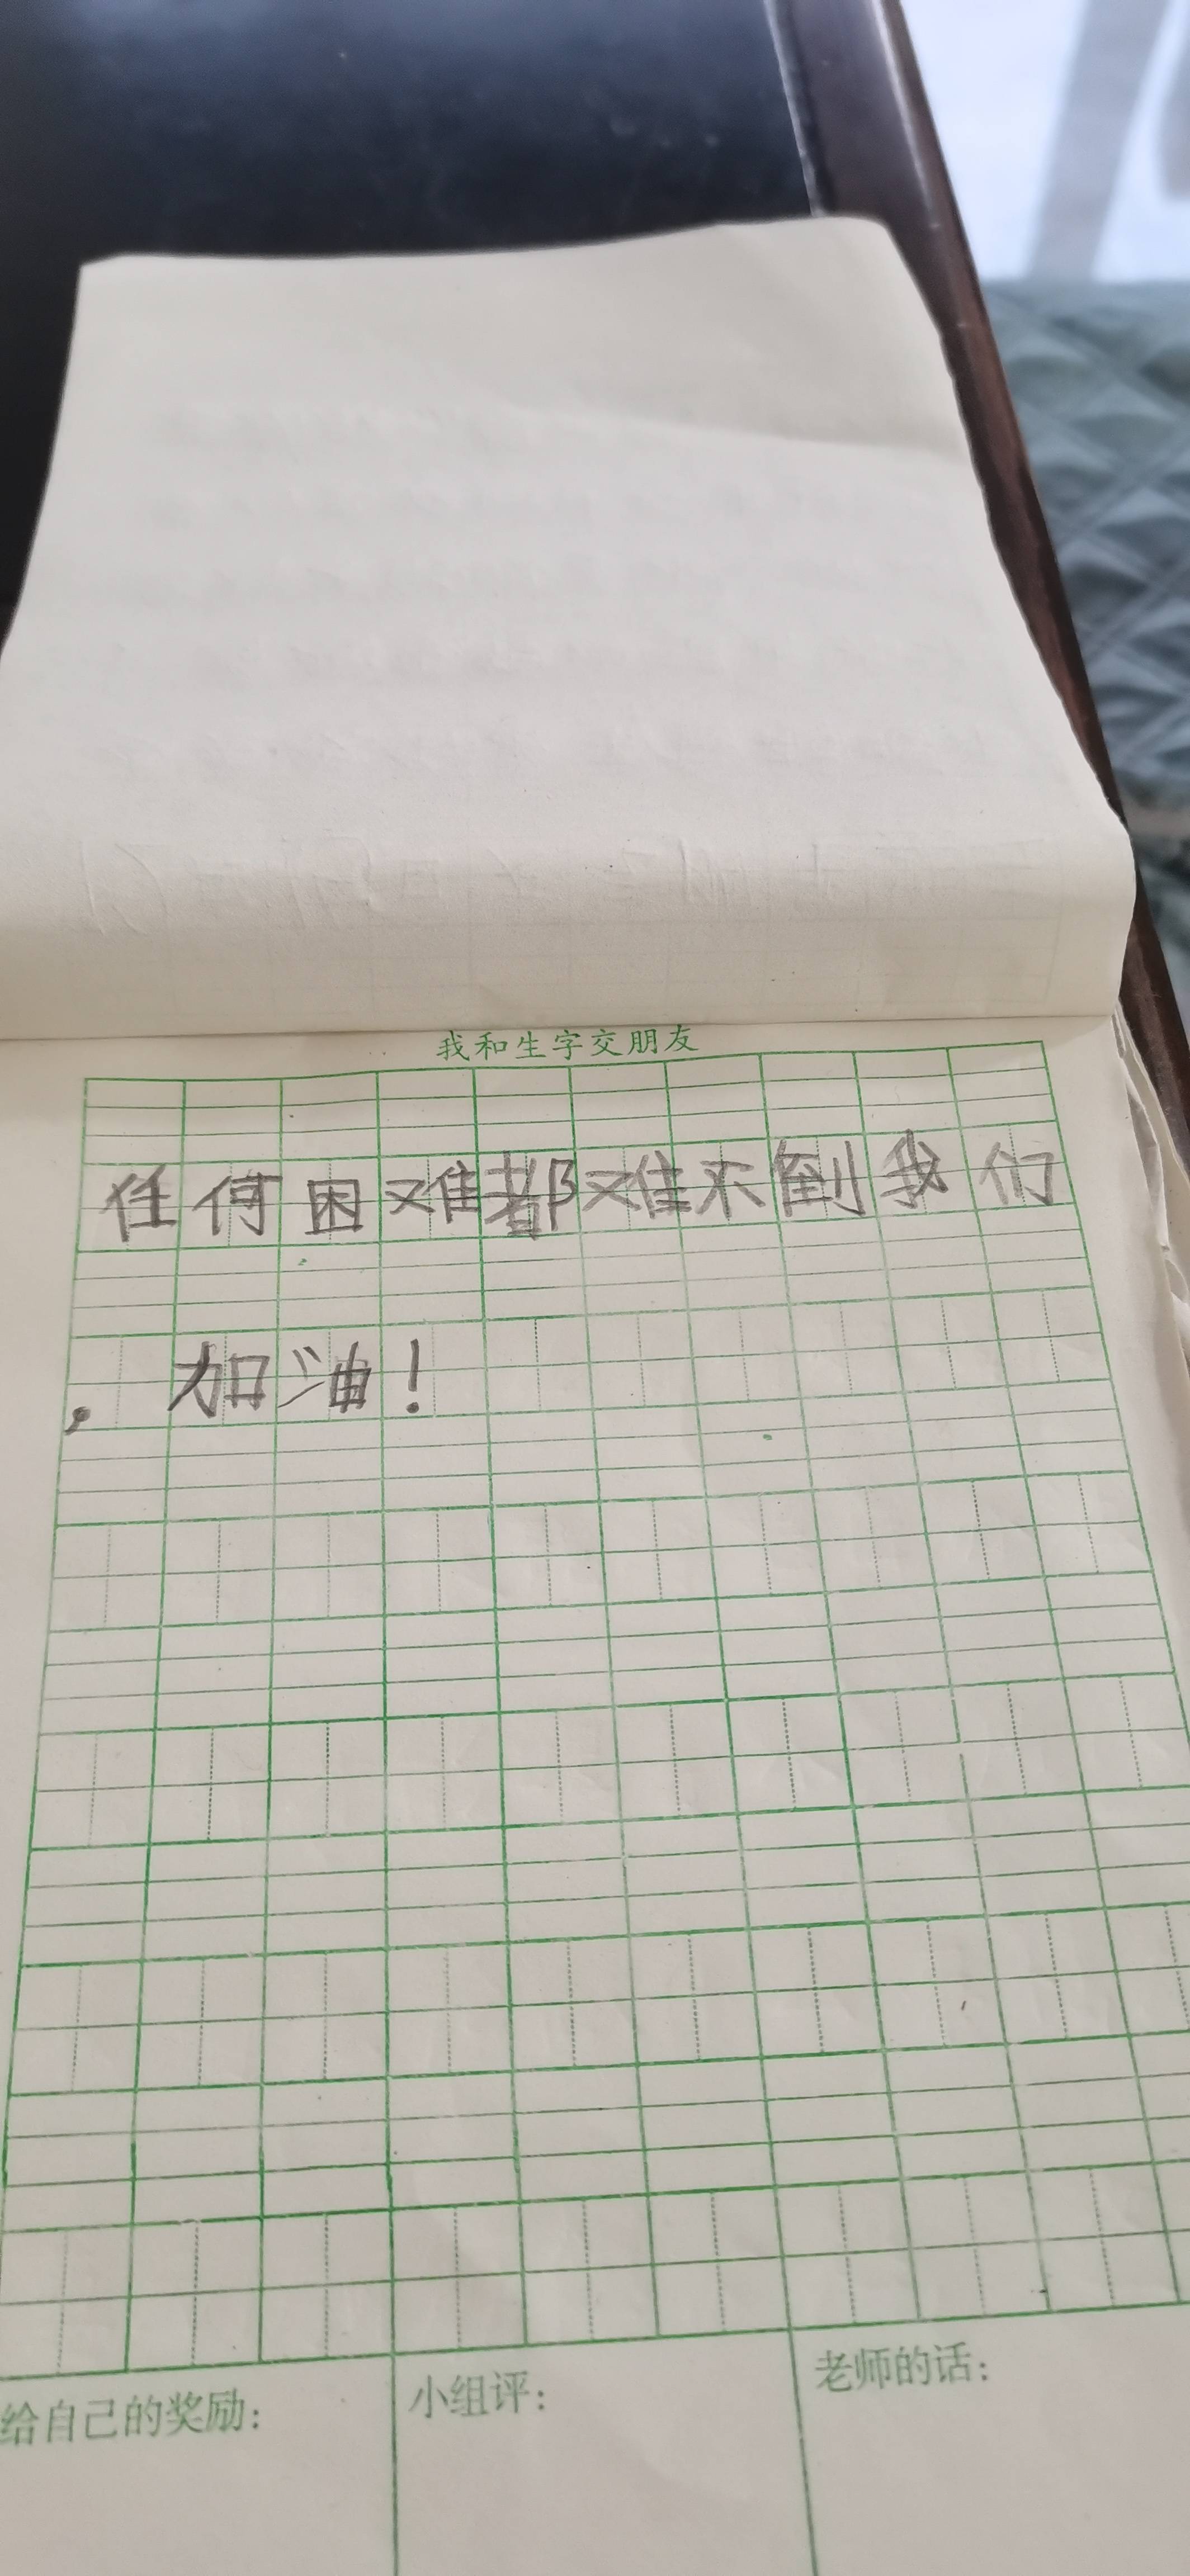 我和生字交朋友
任何困难都难不倒我们
，加油！
给自己的奖励：
小组评：
老师的话：